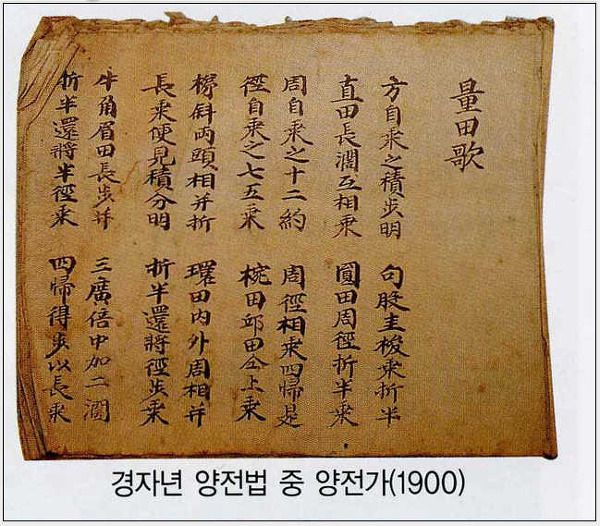 量田歌
方自乘之積步明 句股圭梭乘折半
直田長濶互相乘 圓田周徑折半乘
周自乘之十二約 周徑相乘四歸是
徑自乘之七五乘 椀田邱田仝上乘
梯斜两頭相并折 環田内外周相并
長乘便見積分明 折半還將徑步乘
牛角眉田長步并 三廣倍中加二濶
折半還將半徑乘 四歸得步以長乘
경자년 양전법 중 양전가(1900)